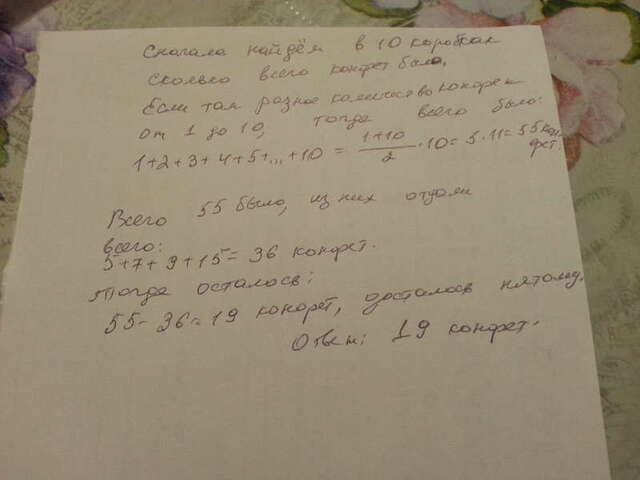 Сначала найдём в 10 коробках
сколько всего конфет было.
Если там разное количество конфет
от 1 до 10, тогда всего было:
1+2+3+4+5+...+10 = \frac{1+10}{2} · 10 = 5 · 11 = 55 кон
фет.
Всего 55 было, из них отдали
всего:
5+7+9+15 = 36 конфет.
Тогда осталось:
55 - 36 = 19 конфет, досталось пятому.
Ответ: 19 конфет.